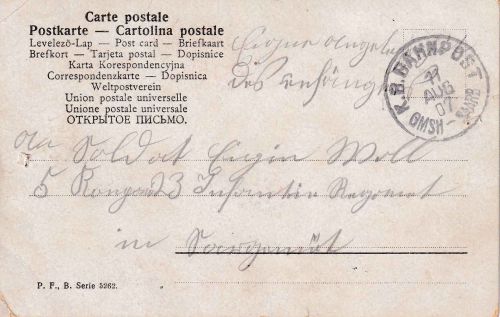 Carte postale
Postkarte — Cartolina postale
Levelező-Lap — Post card — Briefkaart
Brefkort — Tarjeta postal — Dopisnice
Karta Korespondencyjna
Correspondenzkarte — Dopisnica
Weltpostverein
Union postale universelle
Unione postale universale
ОТКРЫТОЕ ПИСЬМО.
Eigene
des
K.B. BAHNPOST
AUG
07
GMSH
an Soldat Woll
5 23 Infanterie Regiment
in
P. F., B. Serie 5262.